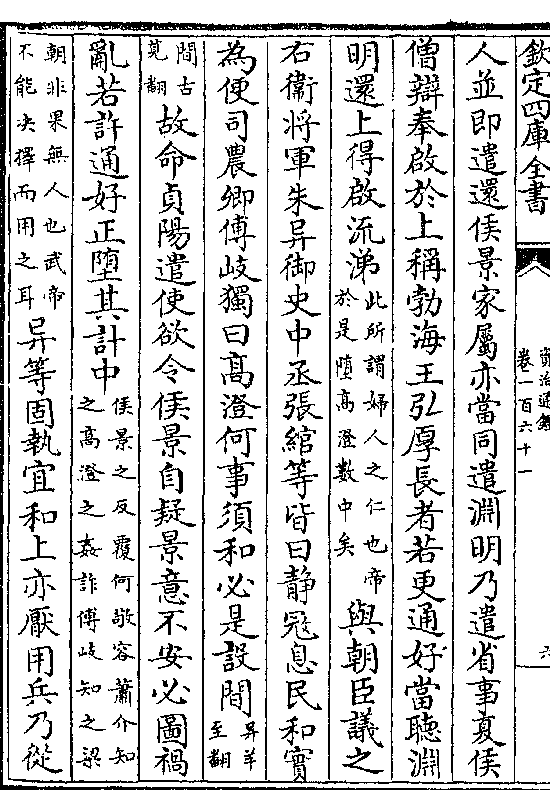 欽定四庫全書
資治通鑑
卷一百六十一
六
人並即遣還侯景家屬亦當同遣淵明乃遣省事夏侯
僧辯奉啟於上稱勃海王弘厚長者若更通好當聽淵
明還上得啟流涕此所謂婦人之仁也帝於是墮高澄數中矣與朝臣議之
右衛將軍朱异御史中丞張綰等皆曰静冦息民和實
為便司農卿傅岐獨曰高澄何事須和必是設間异羊至翻
間古莧翻故命貞陽遣使欲令侯景自疑景意不安必圖禍
亂若許通好正墮其計中侯景之反覆何敬容蕭介知之高澄之姦詐傅岐知之梁
朝非果無人也武帝不能决擇而用之耳异等固執宜和上亦厭用兵乃從